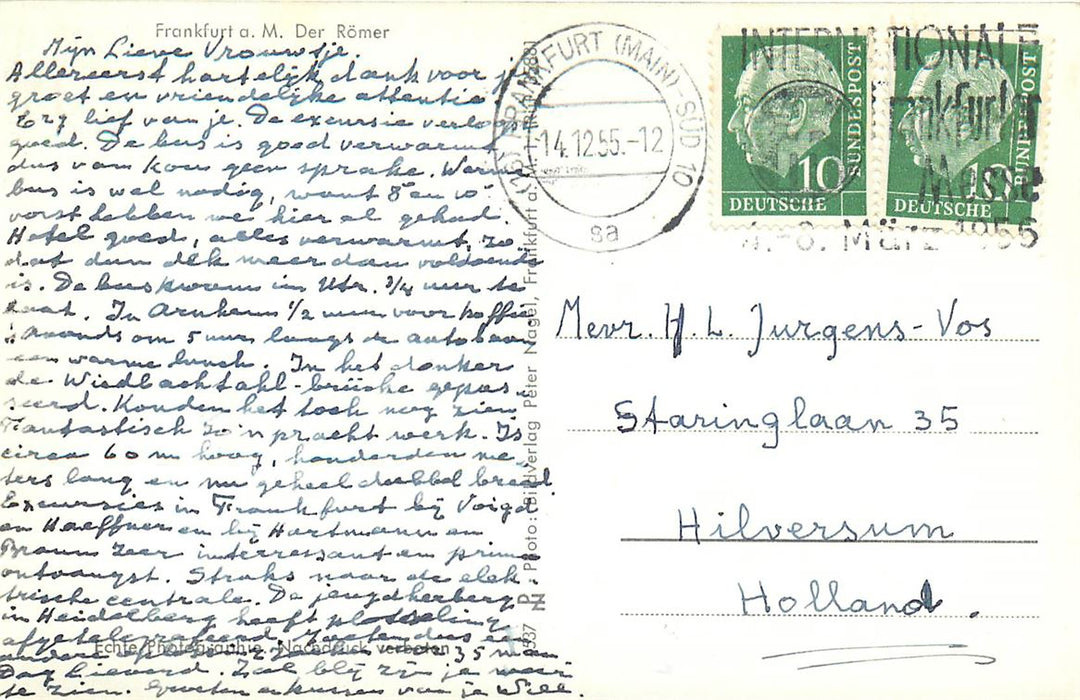 Frankfurt a. M. Der Römer
Mijn Lieve Vrouwtje.
Allereerst hartelijk dank voor je
groet en vriendelijke attentie
Erg lief van je. De excursie verloopt
goed. De bus is goed verwarmd
dus van kou geen sprake. Warme
bus is wel nodig, want 8° en 10°
vorst hebben we hier al gehad.
Hotel goed, alles verwarmt, zo
dat dun dek meer dan voldoende
is. De bus kwam in Utr. 3/4 uur te
laat. In Arnhem 1/2 uur voor koffie
's Avonds om 5 uur langs de autobaan
een warme lunch. In het donker
de Wiedbachtahl-brücke gepas
seerd. Konden het toch nog zien.
Fantastisch zo'n pracht werk. Is
circa 60 m hoog, honderden me
ters lang en nu geheel dubbel breed
Excursies in Frankfurt bij Voigd
en Haeffner en bij Hartmann en
Braun zeer interressant en prima
ontvangst. Straks naar de elek
trische centrale. De jeugdherberg
in Heidelberg heeft plotseling
afgetelegrafeerd. Moeten dus
ander 35 man
Dag Lieverd. Zal blij zijn je weer
te zien. Groeten en kussen van je Will.
Echte Photographie - Nachdruck verboten
Photo: Bildverlag Peter Nagel, Frankfurt a. M.
(16) FRANKFURT (MAIN)-SÜD 10
14.12.55.-12
sa
INTERNATIONALE
Frankfurter
Messe
4.-8. März 1956
10 BUNDESPOST
DEUTSCHE
10 BUNDESPOST
DEUTSCHE
Mevr. H. L. Jurgens-Vos
Staringlaan 35
Hilversum
Holland.